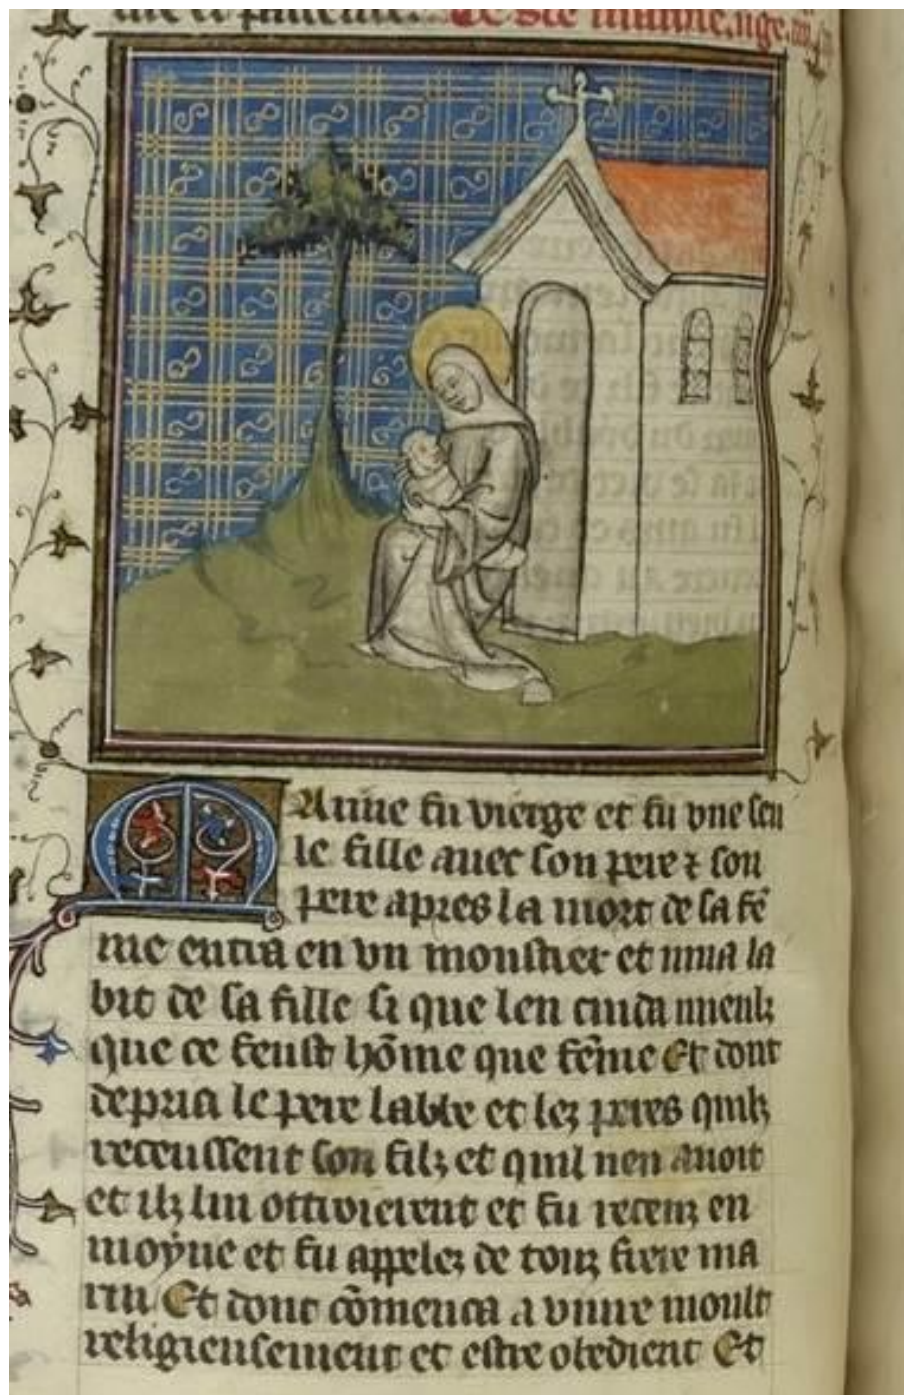 et patience. De Ste marine. vge.
Marine fu vierge et fu vne seu
le fille auec son pere ⁊ son
pere apres la mort de sa fē
me entra en vn moustier et mua la
bit de sa fille si que len cuida mieulz
que ce feust hōme que fēme Et dont
depria le pere labbe et lez peres quilz
receussent son filz et quil nen auoit
et ilz lui ottroierent et fu receuz en
moyne et fu appelez de touz frere ma
rin Et dont cōmenca a viure moult
religieusement et estre obedient Et